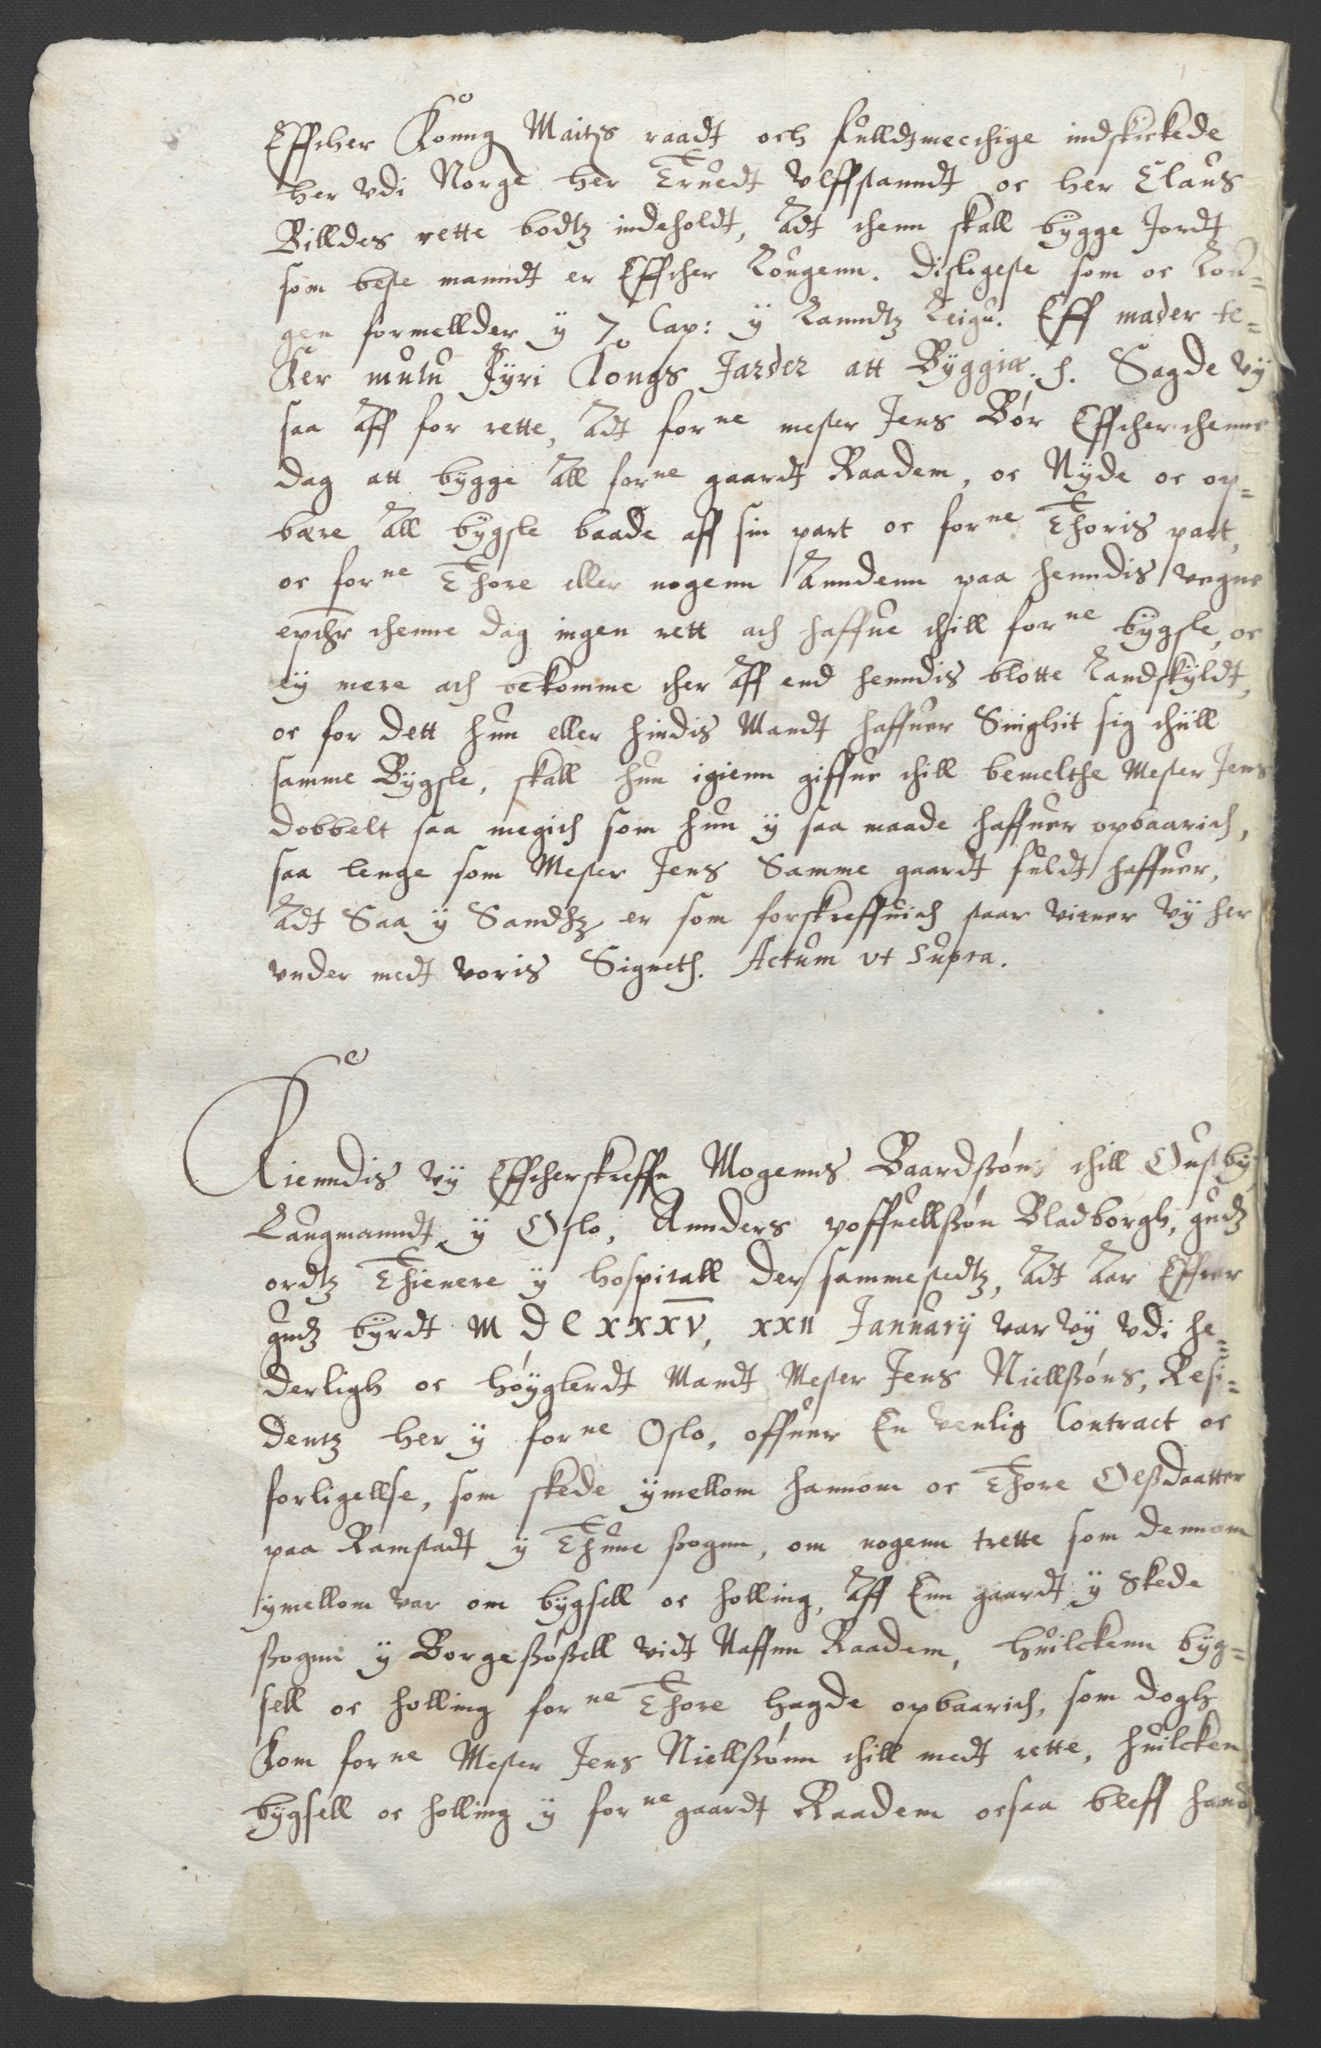 Effther Konng Maitzs raadt och fulldtmecthige indskickede
her vdi Norge her Truedt Vlffstanndt oc her Claus
Billdes rette bodtz indeholdt, Adt thenn skall bygge Jordt
som beste manndt er Effther Lougenn. disligeste som oc Lou-
gen formellder ÿ 7. Cap: ÿ Lanndtz Leigu. Eff mader te-
ker mutu Fyri Kongs Jarder att Byggia. h. Sagde vÿ
saa Aff for rette, Adt forne mester Jens Bør Effther thenne
dag att bygge All forne gaardt Raadem, oc Nyde oc op-
bære All bygsle baade aff sin part oc forne Thoris part,
oc forne Thore eller nogenn Anndenn paa henndis vegne
epther thenne dag ingen rett ath haffue thill forne bygsle, oc
eÿ mere ath bekomme ther Aff end henndis blotte Landskyldt,
oc for dett hun eller hindis Mandt haffuer Tinghit sig thiill
samme Bygsle, skall hun igienn giffue thill bemelthe Mester Jens
dobbelt saa megith som hun ÿ saa maade haffuer opbaarith,
saa lenge som Mester Jens Samme gaardt fuldt haffuer,
Adt Saa ÿ Sandhz er som forskreffuith staar vitner vÿ her
vnder medt voris Signeth. Actum vt supra.
Kienndis vÿ Efftherskreffne Mogenns Baardssøn thill Oustby
Laugmanndt ÿ Oslo, Annders poffuellsøn Bladborgh, gudz
ordtz Thienere ÿ hospitall der sammestedtz, Adt Aar Effter
gudz byrdt M d C xxxv, xxii Januarij var vÿ vdi he-
derligh oc høyglerdt Mandt Mester Jens Niellssøns, Resi-
dentz her ÿ forne Oslo, offuer En venlig Contract oc
forligellse, som skede ÿmellom hannom oc Thore Olssdaatter
paa Ramstadt ÿ Thune ssognn, om nogenn trette som dennom
ÿmellom var om bygsell oc holling, Aff Enn gaardt ÿ Skede
ssognn ÿ Borgessøssell vidt Naffnn Raadem, huilckenn byg-
sell oc holling forne Thore hagde opbaarith, som dogh
kom forne Mester Jens Niellssønn thill medt rette, huilcken
bygsell oc holling ÿ forne gaardt Raadem ocsaa bleff hand